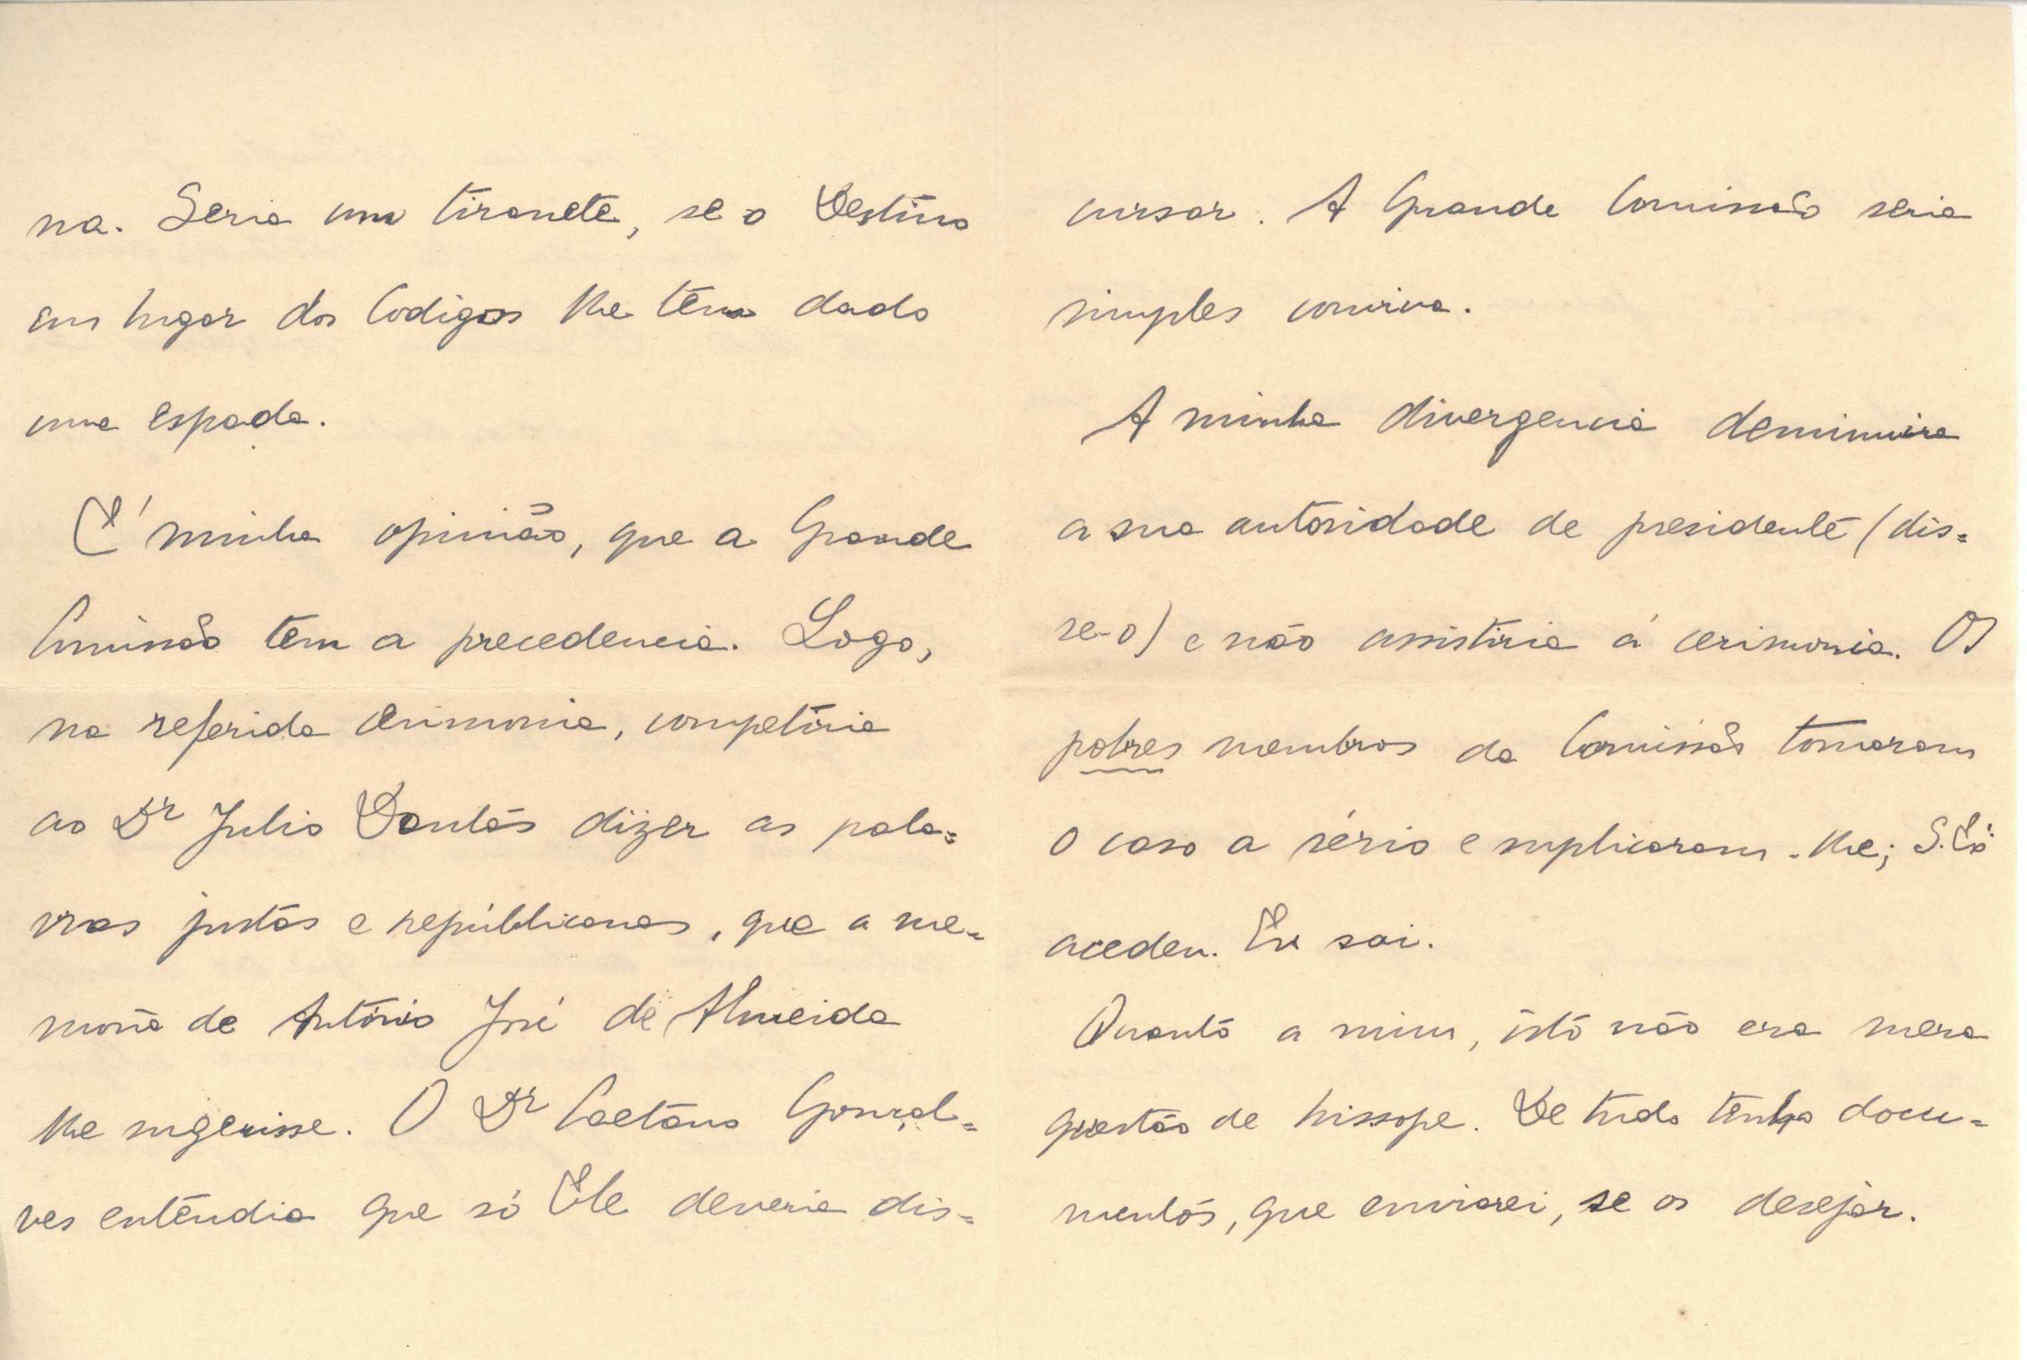 na. Seria um tiranete, se o Destino
em lugar dos Codigos lhe têm dado
uma espada.
E' minha opinião, que a Grande
Comissão tem a precedencia. Logo,
na referida cerimonia, competiria
ao Dr Julio Dantas dizer as pala=
vras justas e républicanas, que a me=
moria de António José de Almeida
lhe sugerisse. O Dr Caetano Gonçal=
ves entendia que só Ele deveria dis=
cursar. A Grande Comissão seria
simples conviva.
A minha divergencia deminuira
a sua autoridade de presidente (dis=
se-o) e não assistiria á cerimonia. Os
pobres membros da Comissão tomaram
o caso a sério e suplicaram-lhe; S. Exª
acedeu. Eu sai.
Quanto a mim, isto não era mera
questão de hissope. De tudo tenho docu=
mentos, que enviarei, se os desejar.